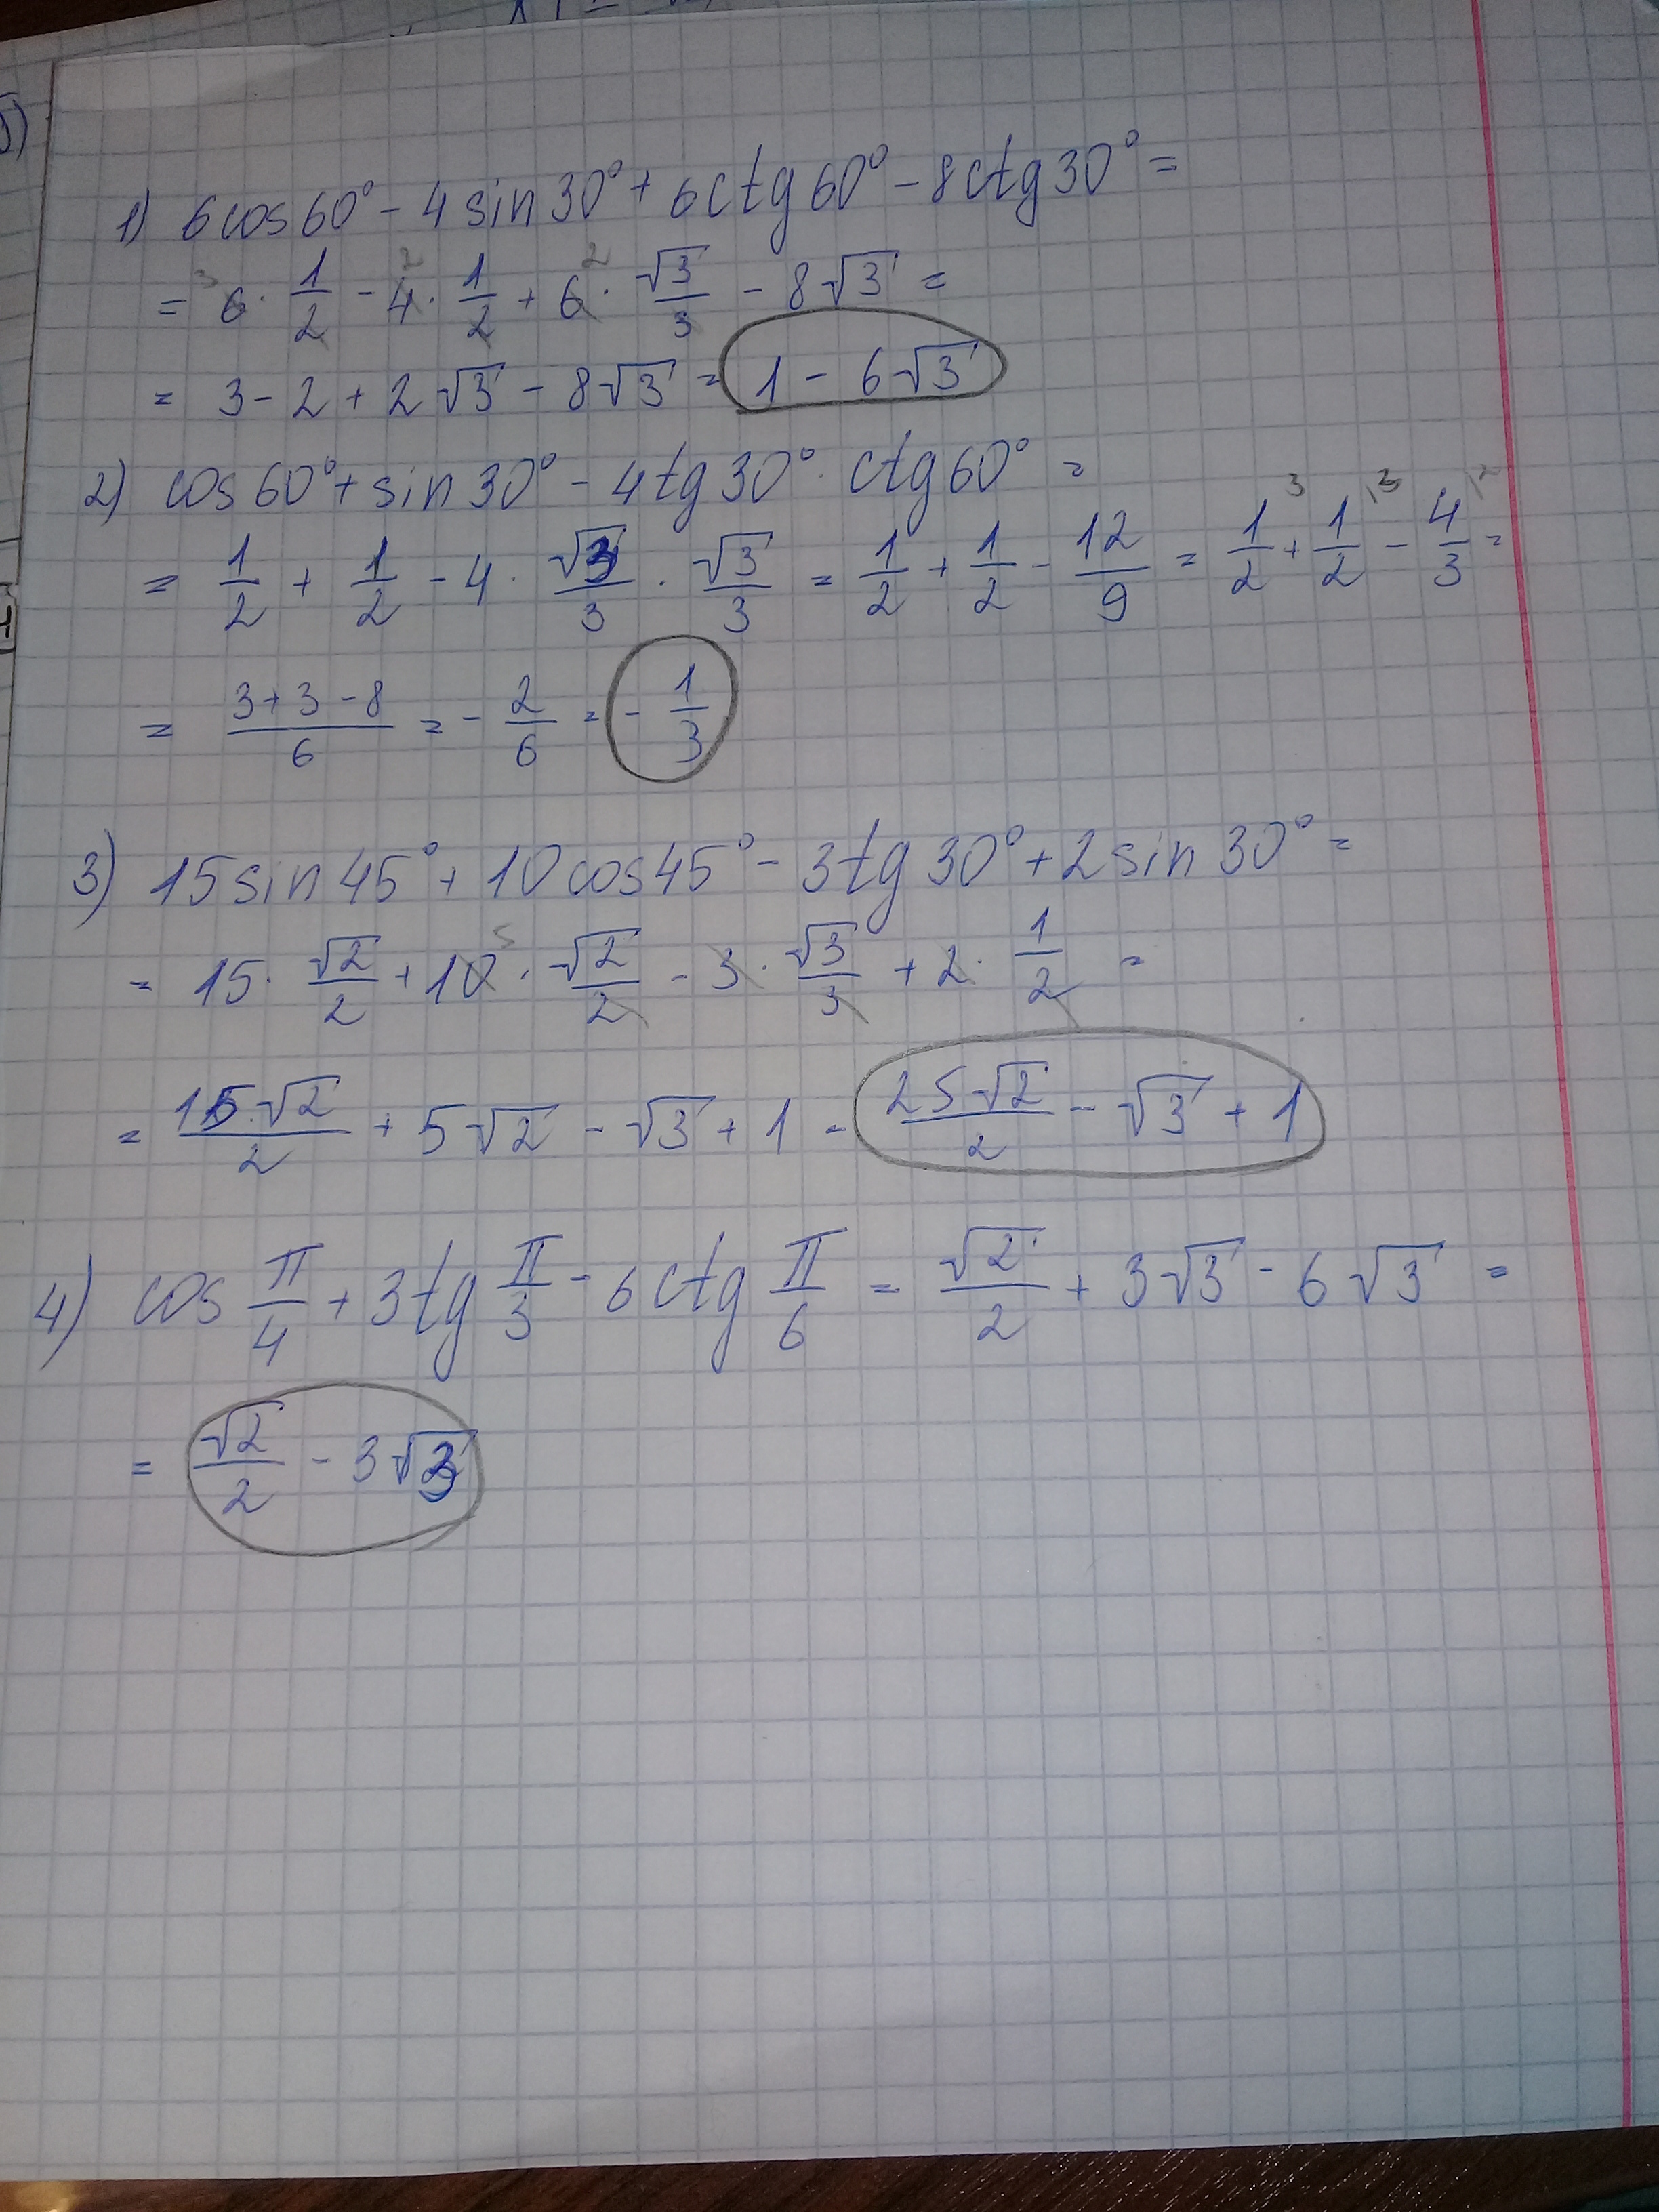 5)
1) 6cos60° - 4sin30° + 6ctg60° - 8ctg30° =
= 6³ · 1/2 - 4² · 1/2 + 6² · √3/3 - 8√3 =
= 3 - 2 + 2√3 - 8√3 = 1 - 6√3
2) cos60° + sin30° - 4tg30° · ctg60° =
= 1/2 + 1/2 - 4 · √3/3 · √3/3 = 1/2 + 1/2 - 12/9 = 1/2\3 + 1/2\3 - 4/3\2 =
= (3+3-8)/6 = -2/6 = -1/3
3) 15sin45° + 10cos45° - 3tg30° + 2sin30° =
= 15 · √2/2 + 10⁵ · √2/2 - 3 · √3/3 + 2 · 1/2 =
= 15·√2/2 + 5√2 - √3 + 1 = 25√2/2 - √3 + 1
4) cos π/4 + 3tg π/3 - 6ctg π/6 = √2/2 + 3√3 - 6√3 =
= √2/2 - 3√3